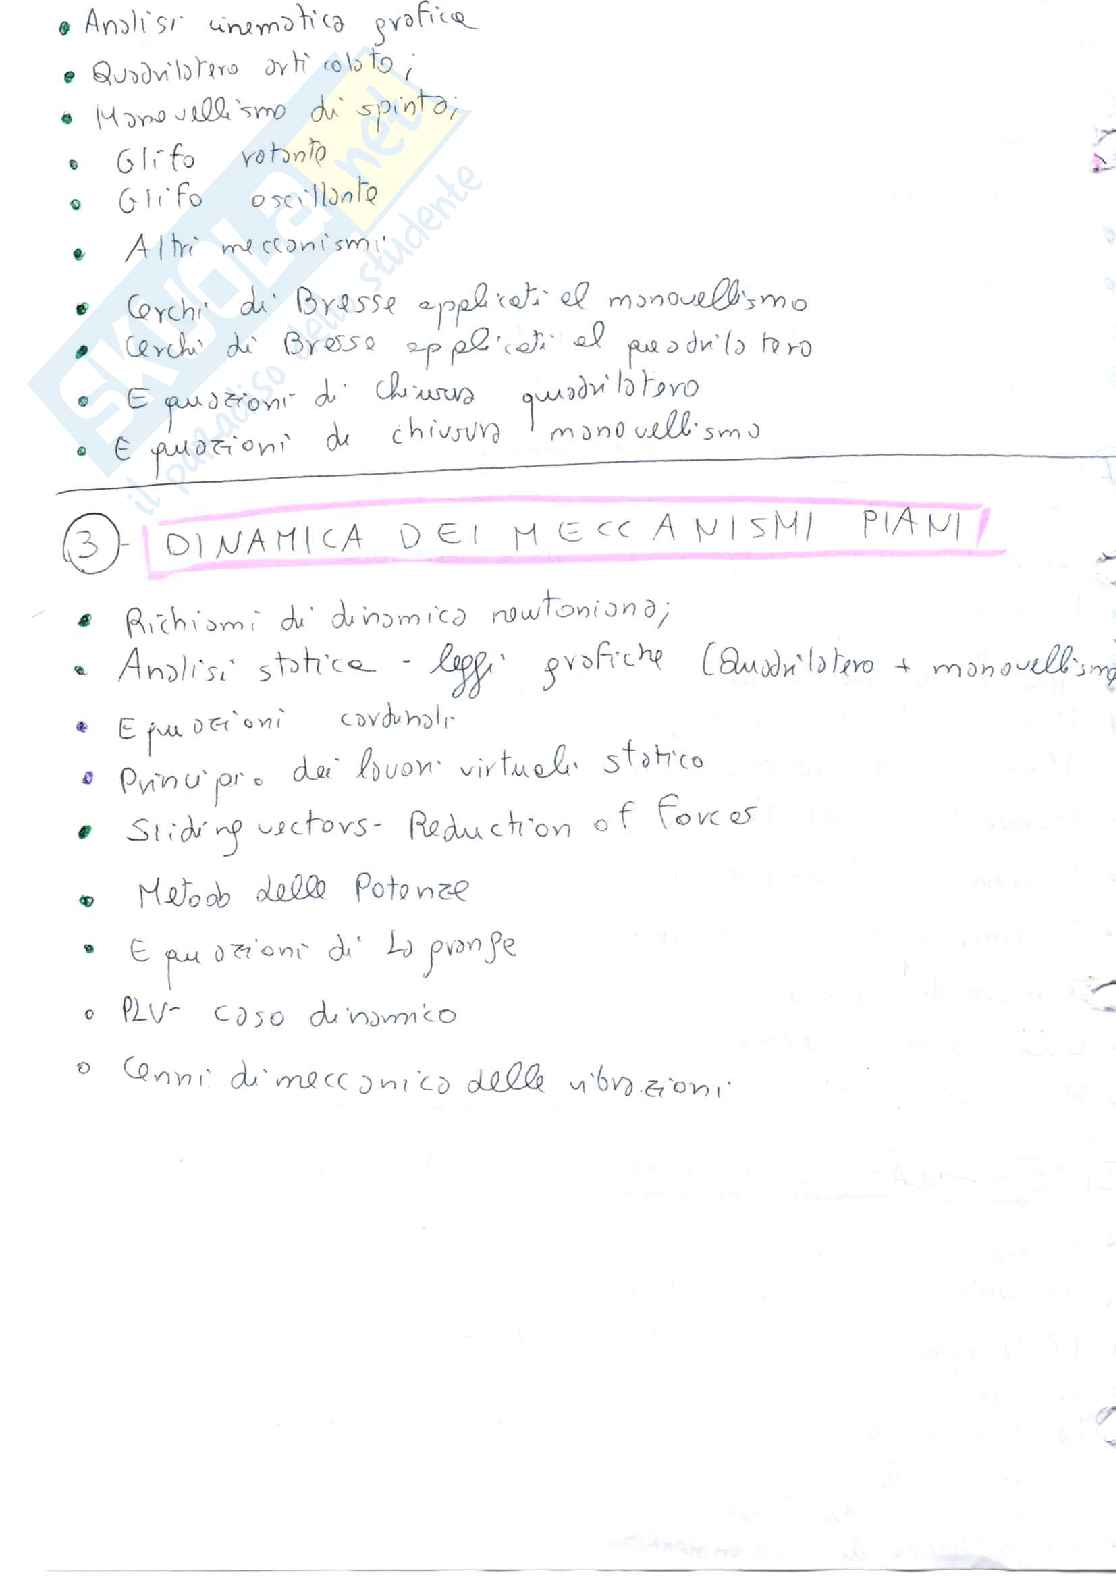 • Analisi cinematica grafica
• Quadrilatero articolato;
• Manovellismo di spinta;
• Glifo rotante
• Glifo oscillante
• Altri meccanismi
• Cerchi di Bresse applicati al manovellismo
• Cerchi di Bresse applicati al quadrilatero
• Equazioni di chiusura quadrilatero
• Equazioni di chiusura manovellismo
SKUOLA.net
il paradiso dello studente
3 - DINAMICA DEI MECCANISMI PIANI
• Richiami di dinamica newtoniana;
• Analisi statica - leggi grafiche (Quadrilatero + manovellismo
• Equazioni cardinali
• Principio dei lavori virtuali statico
• Sliding vectors - Reduction of Forces
• Metodo delle Potenze
• Equazioni di Lagrange
• PLV - caso dinamico
• Cenni di meccanica delle vibrazioni